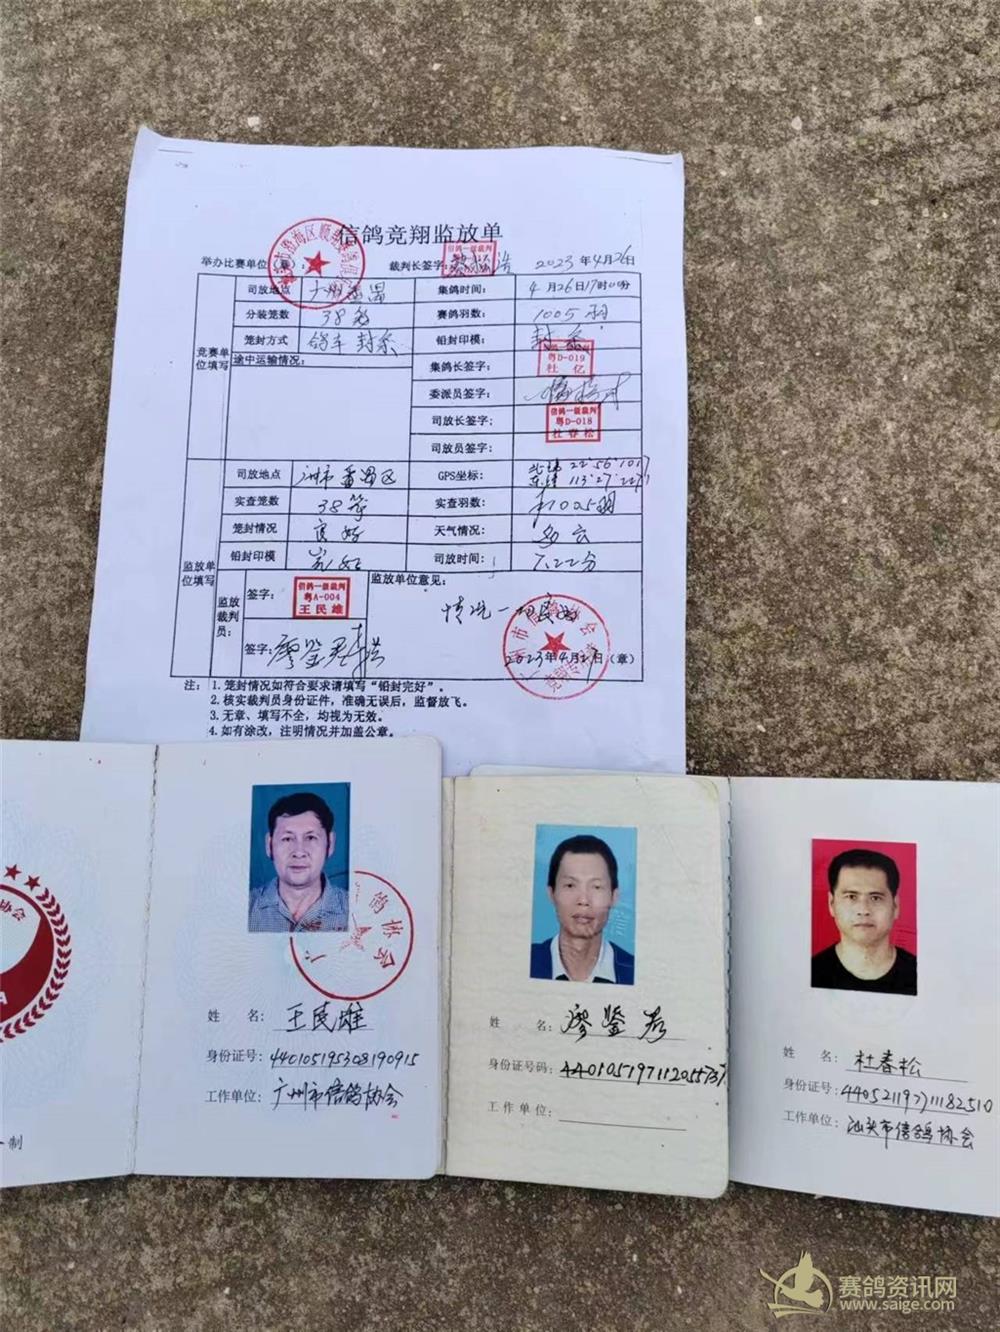 信鸽竞翔监放单
举办比赛单位(章): 裁判长签字: 2023年4月26日
竞赛单位填写
司放地点 广州番禺 集鸽时间: 4月26日17时00分
分装笼数 38笼 赛鸽羽数: 1005羽
笼封方式 鸽车封条 铅封印模: 封条
途中运输情况: 集鸽长签字: 粤D-019 杜亿
委派员签字:
司放长签字: 信鸽一级裁判 粤D-018 杜春松
司放员签字:
监放单位填写
司放地点 广州市番禺区 GPS坐标: 北纬 22°56′10
东经 113°27′22
实查笼数 38笼 实查羽数: 1005羽
笼封情况 良好 天气情况: 多云
铅封印模 完好 司放时间: 7.22分
监放裁判员: 签字: 信鸽一级裁判 粤A-004 王民雄
签字: 廖鉴
监放单位意见:
情况一切良好
2023年4月27日(章)
注: 1.笼封情况如符合要求请填写“铅封完好”。
2.核实裁判员身份证件，准确无误后，监督放飞。
3.无章、填写不全，均视为无效。
4.如有涂改，注明情况并加盖公章。
协会
制
姓 名: 王民雄
身份证号: 440105195308190915
工作单位: 广州市信鸽协会
姓 名: 廖鉴
身份证号码:
工作单位:
姓 名: 杜春松
身份证号: 
工作单位: 汕头市信鸽协会
赛鸽资讯网
www.saige.com